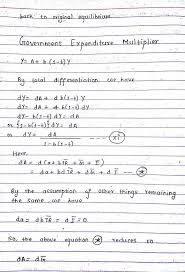 back to original equilibrium.
Government Expenditure Multiplier
Y = A + b(1-t)Y
By total differentiation we have
dY = dA + d b(1-t)Y
dY = dA + b(1-t) dY
dY - b(1-t)dY = dA
or {1-b(1-t)} dY = dA
or dY = dA / 1-b(1-t)
Here,
dA = d(a + b
da + bd
By the assumption of other things remaining
the same we have
da = d b = d I = 0.
So, the above equation reduces to
dA =